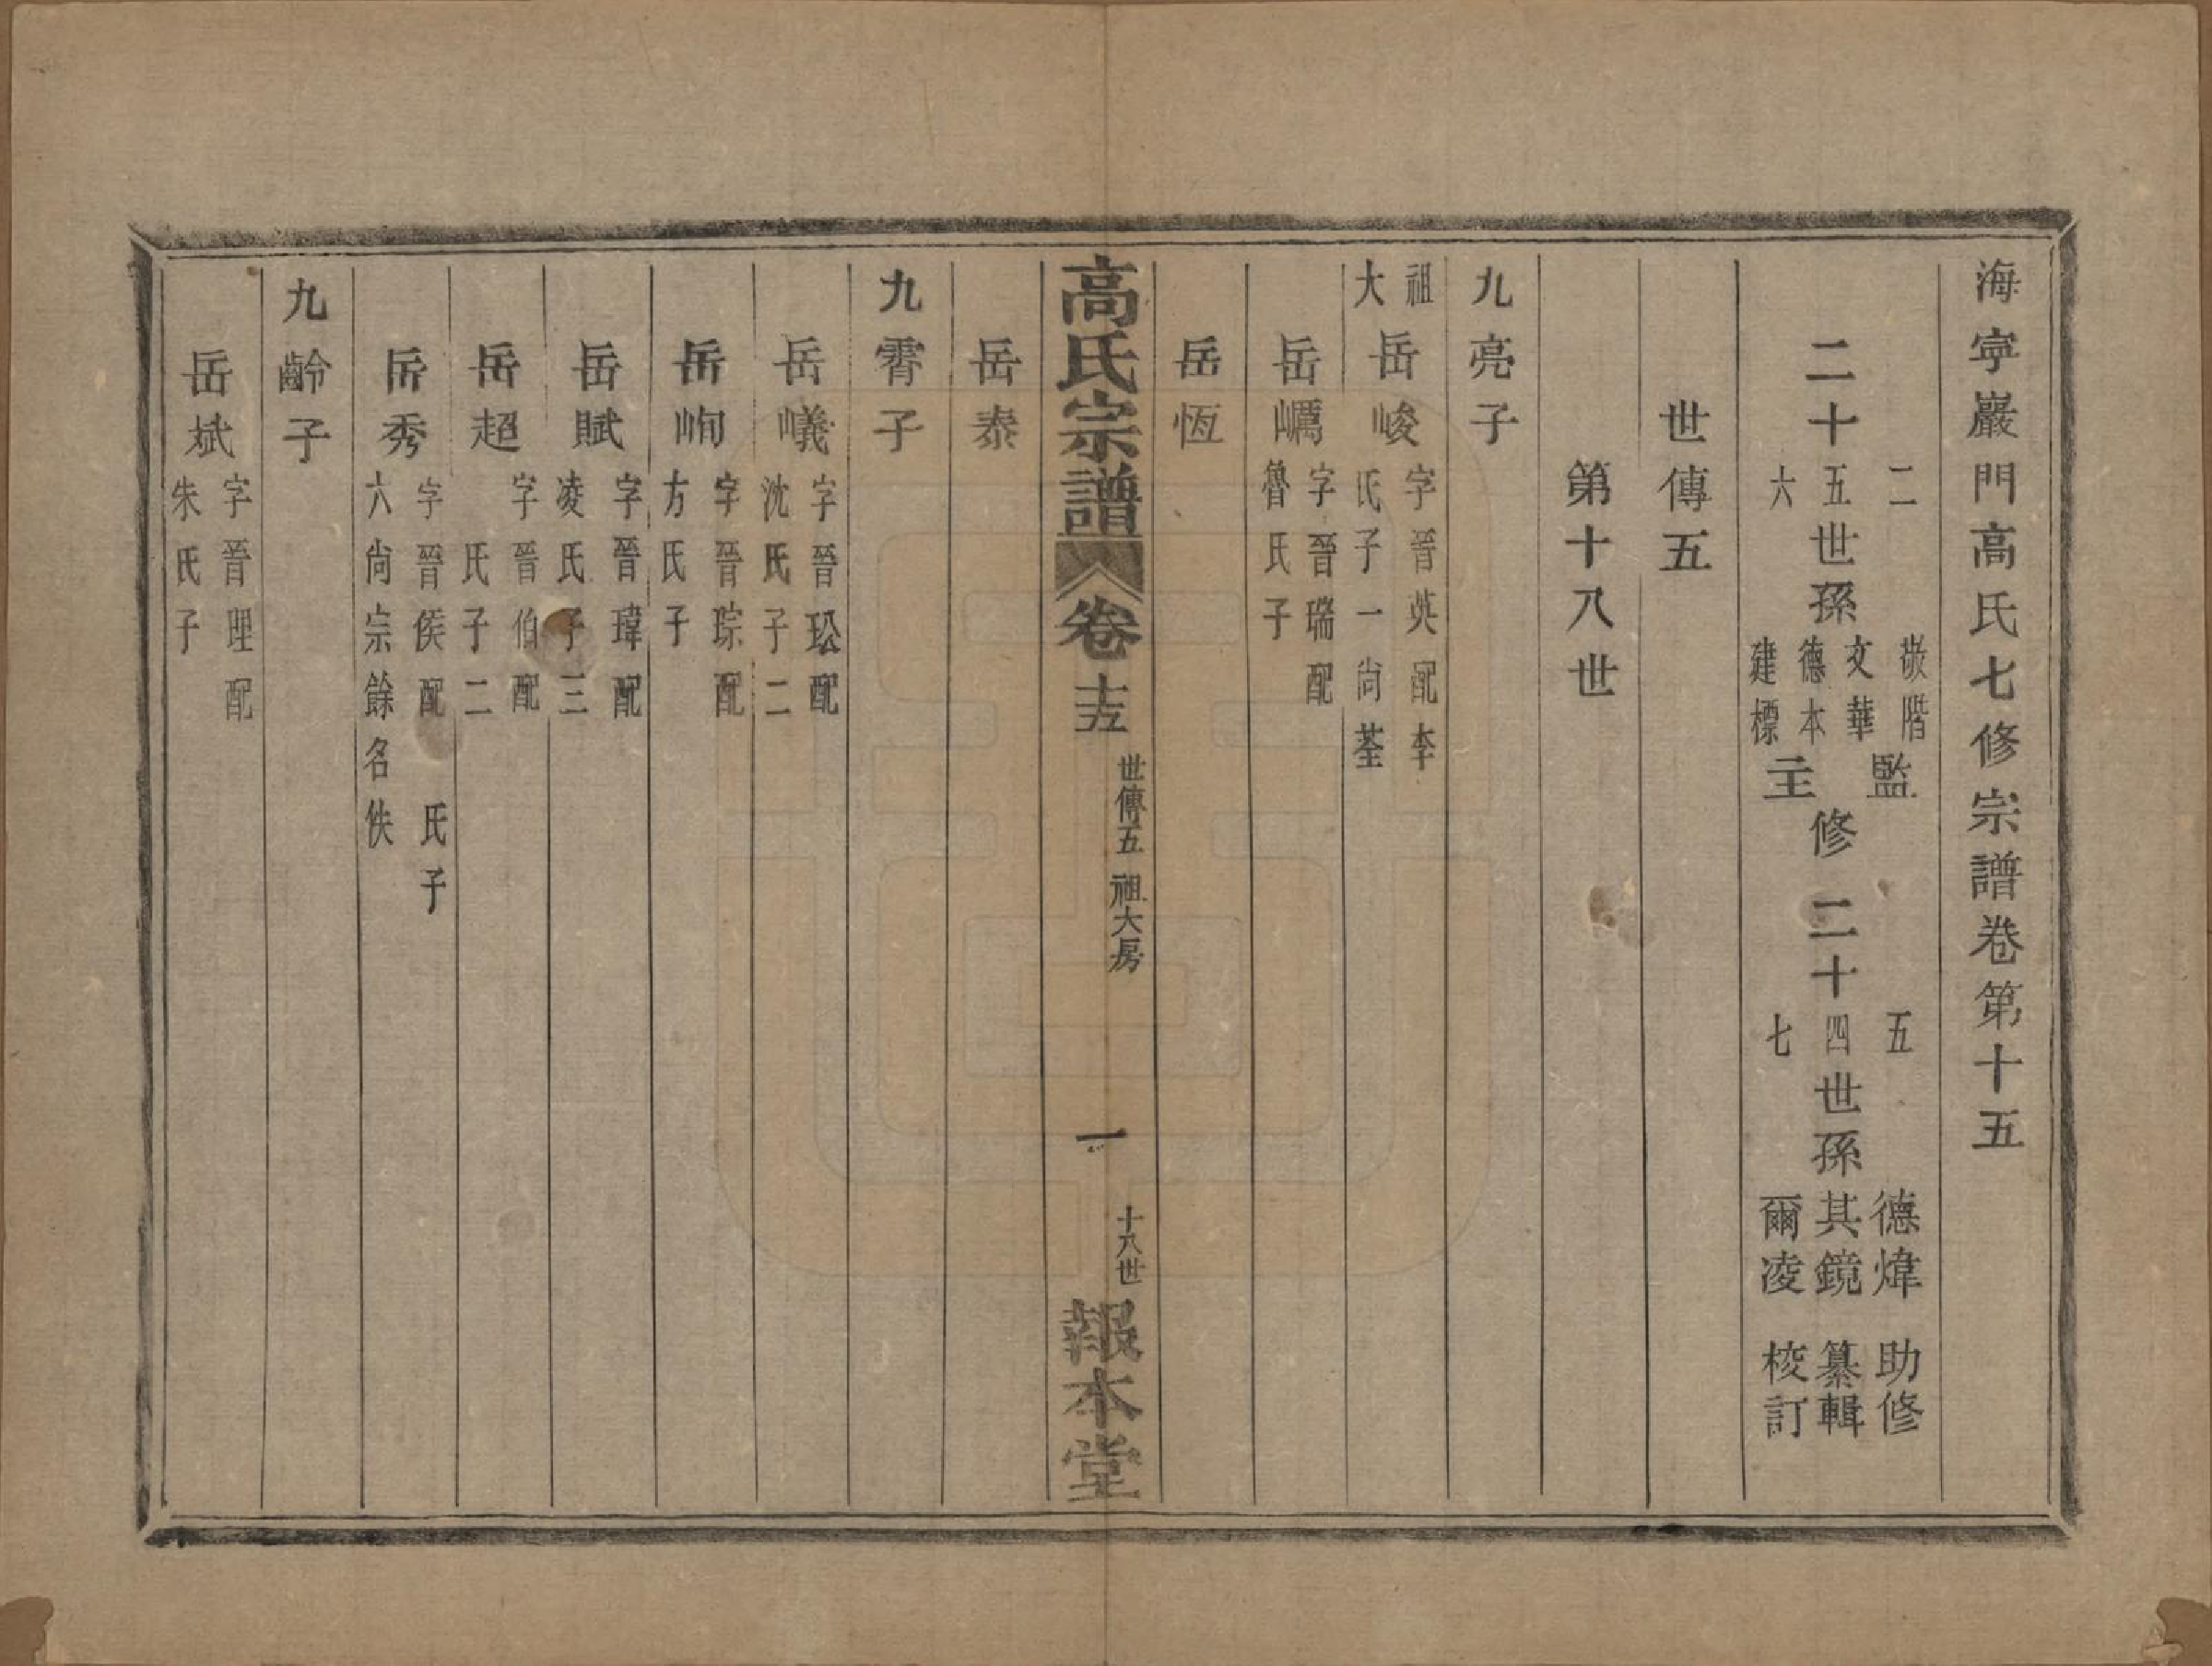 海寧巖門高氏七修宗譜卷第十五
二十
二
五
六
世孫
敬階
文華
德本
建標
監
主
修
二十
五
四
七
世孫
德煒
其鏡
爾凌
助修
纂輯
校訂
世傳五
第十八世
九亮子
祖
大
岳峻
字晉英配李
氏子一尚荃
岳㠣
字晉瑞配
魯氏子
岳恆
高氏宗譜
卷十五
世傳五
祖大房
一
十八世
報本堂
岳泰
九霄子
岳㠖
字晉玜配
沈氏子二
岳峋
字晉琮配
方氏子
岳賦
字晉瑋配
凌氏子三
岳超
字晉伯配
氏子二
岳秀
字晉侯配 氏子
六尚宗餘名佚
九齡子
岳斌
字晉理配
朱氏子